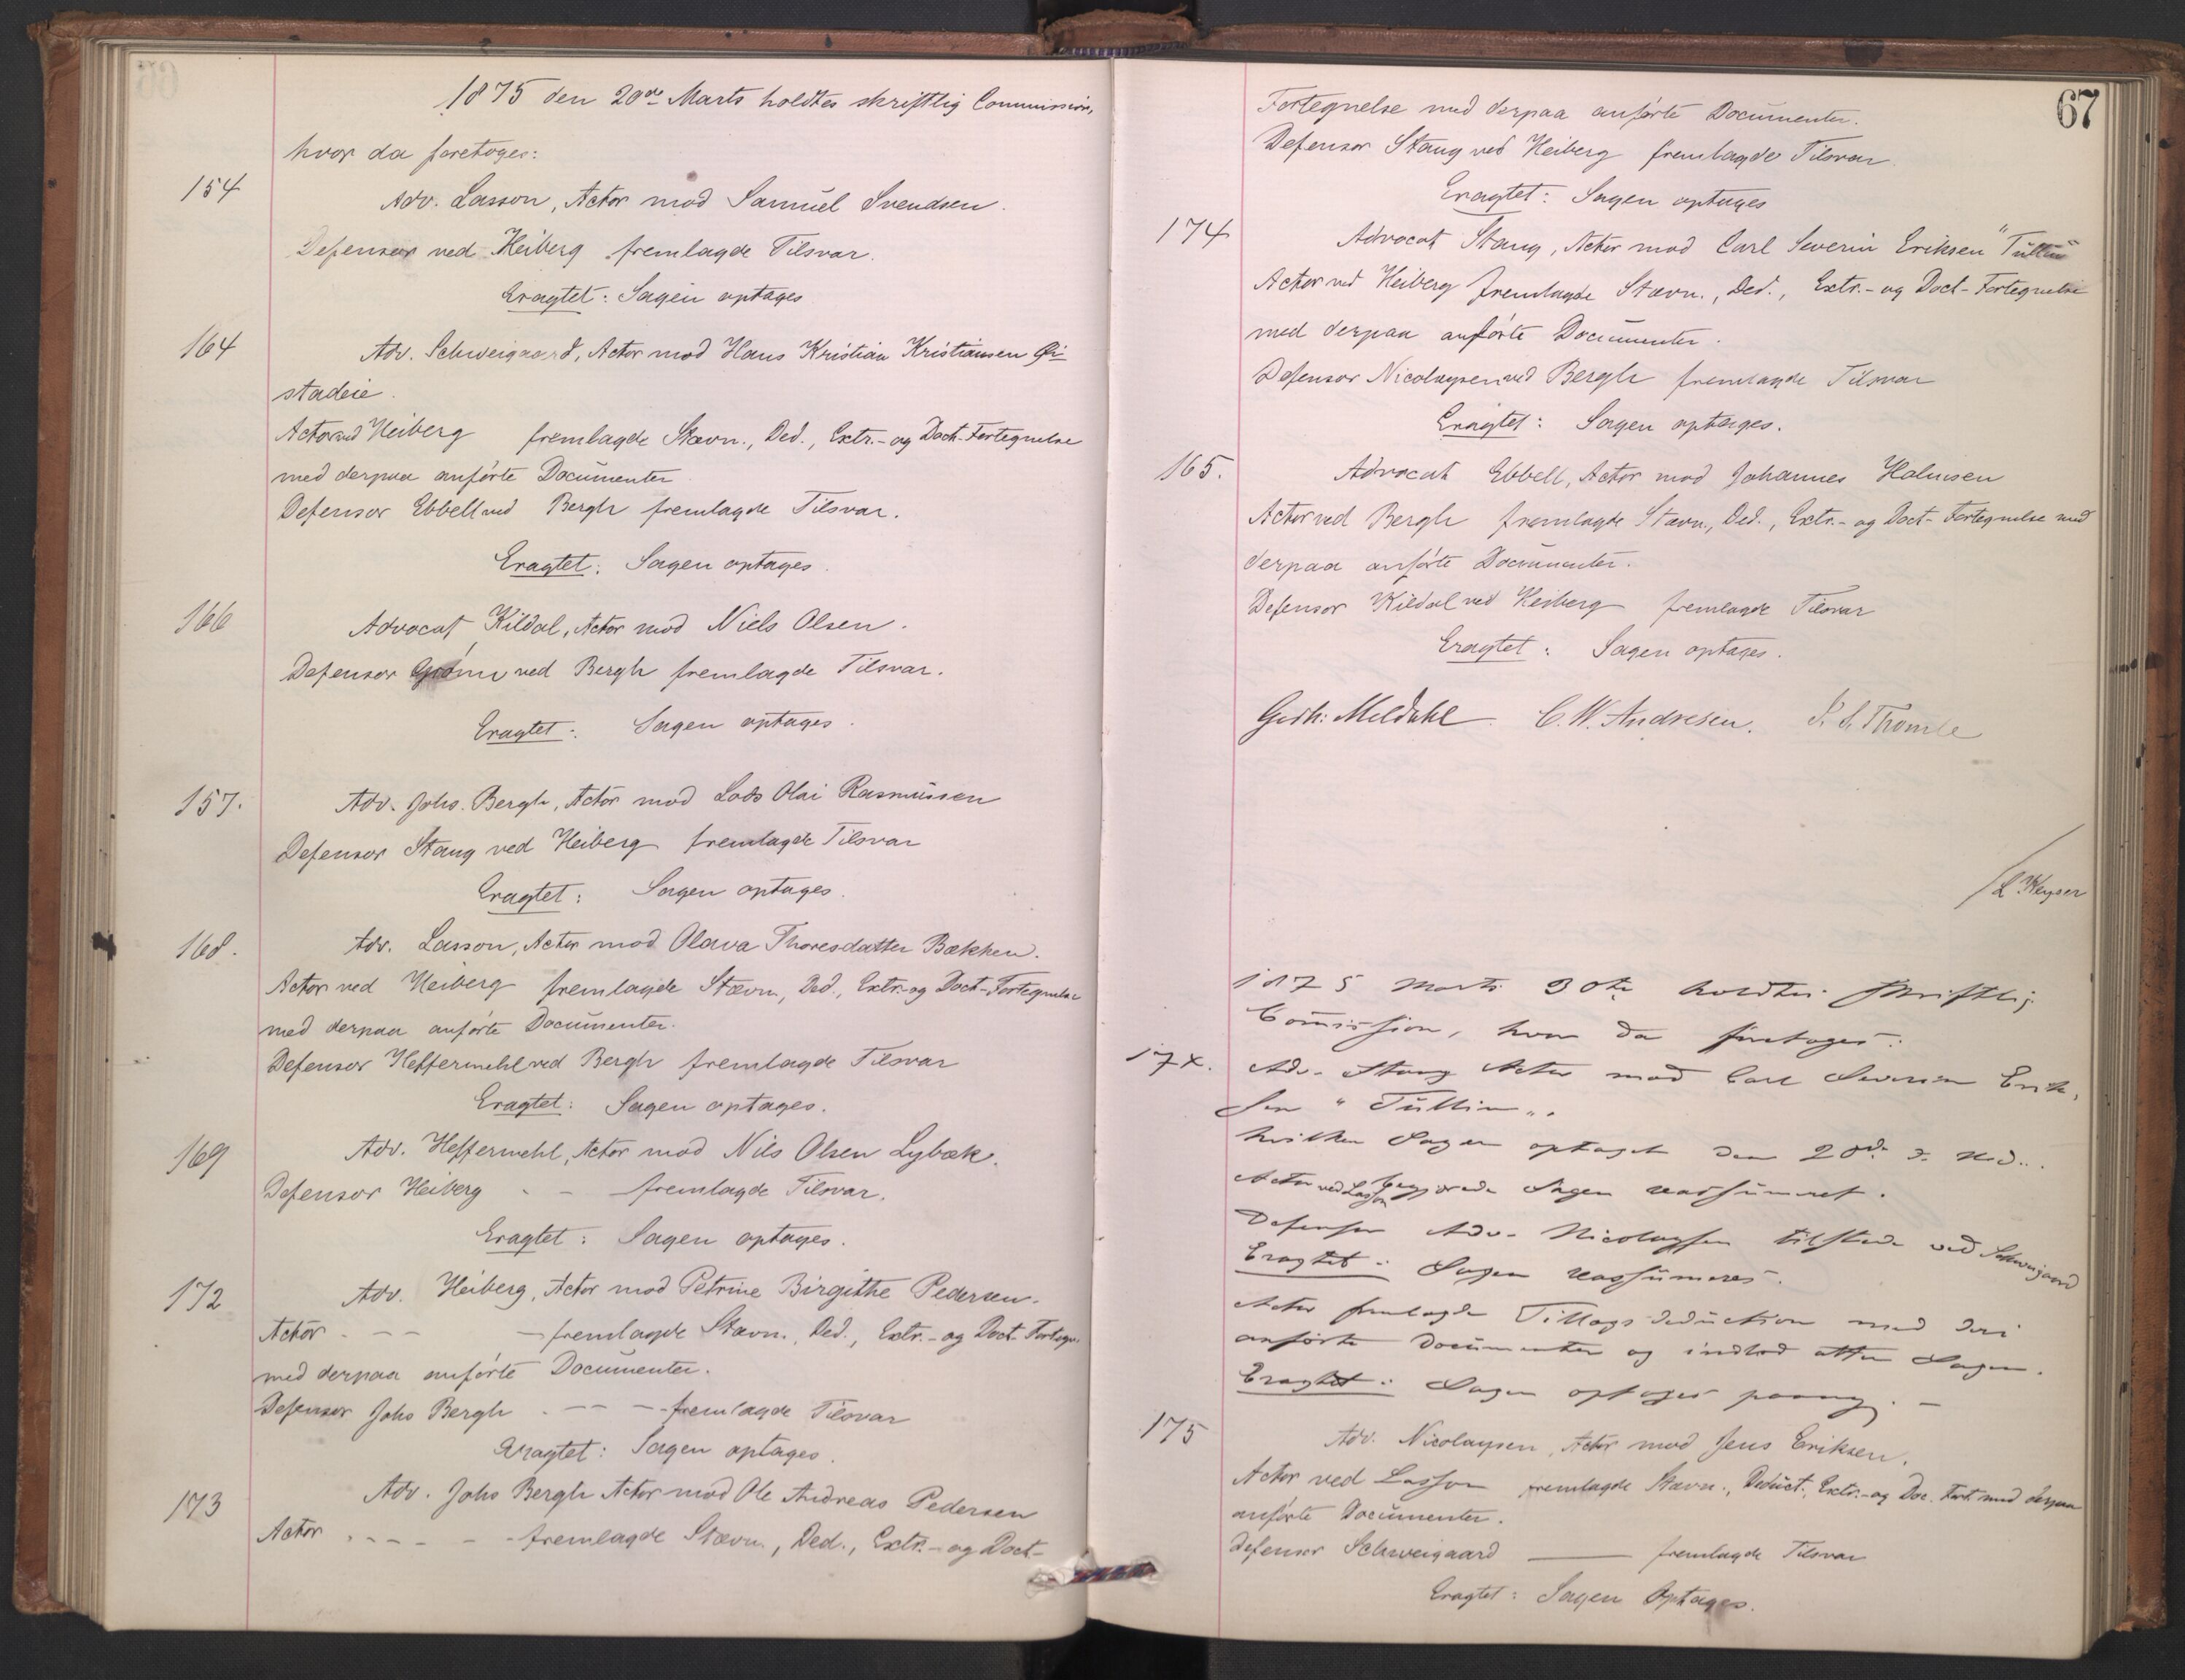 1875 den 20de Marts holdtes skriftlig Commission,
hvor da foretoges:
154
Adv. Lasson, Actor mod Samuel Svendsen.
Defensor ved Heiberg fremlagde Tilsvar.
Eragtet: Sagen optages
164
Adv. Schweigaard, Actor mod Hans Kristian Kristiansen
stadeie.
Actor ved Heiberg fremlagde Stævn., Ded., Extr.- og Doct-Fortegnelse
med derpaa anførte Documenter
Defensor Ebbell ved Bergh fremlagde Tilsvar.
Eragtet: Sagen optages.
166
Advocat Kildal, Actor mod Niels Olsen.
Defensor ved Bergh fremlagde Tilsvar.
Eragtet: Sagen optages.
157.
Adv. Johs. Bergh, Actor mod Lods Olai Rasmussen
Defensor Stang ved Heiberg fremlagde Tilsvar
Eragtet: Sagen optages.
168.
Adv. Lasson, Actor mod Olava Thoresdatter Bækken.
Actor ved Heiberg fremlagde Stævn, Ded., Extr.- og Doct-Fortegnelse
med derpaa anførte Documenter.
Defensor Heffermehl ved Bergh fremlagde Tilsvar
Eragtet: Sagen optages.
169
Adv. Heffermehl, Actor mod Nils Olsen Lybæk.
Defensor Heiberg - - fremlagde Tilsvar.
Eragtet: Sagen optages.
172
Adv. Heiberg, Actor mod Petrine Birgithe Pedersen.
Actor - - - - fremlagde Stævn., Ded., Extr.- og Doct. Fortegn.
med derpaa anførte Documenter.
Defensor Johs Bergh - - - - fremlagde Tilsvar
Eragtet: Sagen optages.
173
Adv. Johs Bergh Actor mod Ole Andreas Pedersen
Actor - - - - - fremlagde Stævn., Ded., Extr.- og Doct-
67
Fortegnelse med derpaa anførte Documenter.
Defensor Stang ved Heiberg fremlagde Tilsvar
Eragtet: Sagen optages
174
Advocat Stang, Actor mod Carl Severin Eriksen "Tullin"
Actor ved Heiberg fremlagde Stævn., Ded., Extr.- og Doct-Fortegnelse
med derpaa anførte Documenter.
Defensor Nicolaysen ved Bergh fremlagde Tilsvar
Eragtet: Sagen optages.
165.
Advocat Ebbell, Actor mod Johannes Halmsen
Actor ved Bergh fremlagde Stævn., Ded., Extr.- og Doct-Fortegnelse med
derpaa anførte Documenter.
Defensor Kildal ved Heiberg fremlagde Tilsvar
Eragtet: Sagen optages.
Gerh: Meldahl. C. W. Andresen. Thomle
/ L Keyser
1875 Marts 30te holdtes skriftlig
Commission, hvor da foretoges:
174.
Adv. Stang Actor mod Carl Severin Erik-
sen "Tullin".
hvilken Sagen optaget den 20de d. Md..
Actor ved Lasson begjærede Sagen reassumeret.
Defensor Adv. Nicolaysen tilstede ved Schweigaard
Eragtet: Sagen reassumeres.
Actor fremlagde Tillægsdeduction med deri
anførte Documenter og indlod atter Sagen.
Eragtet: Sagen optages paany. -
175
Adv. Nicolaysen, Actor mod Jens Eriksen.
Actor ved Lasson fremlagde Stævn., Deduct., Extr.- og Doc. Fort. med derpaa
anførte Documenter.
Defensor Schweigaard — fremlagde Tilsvar
Eragtet: Sagen Optages.